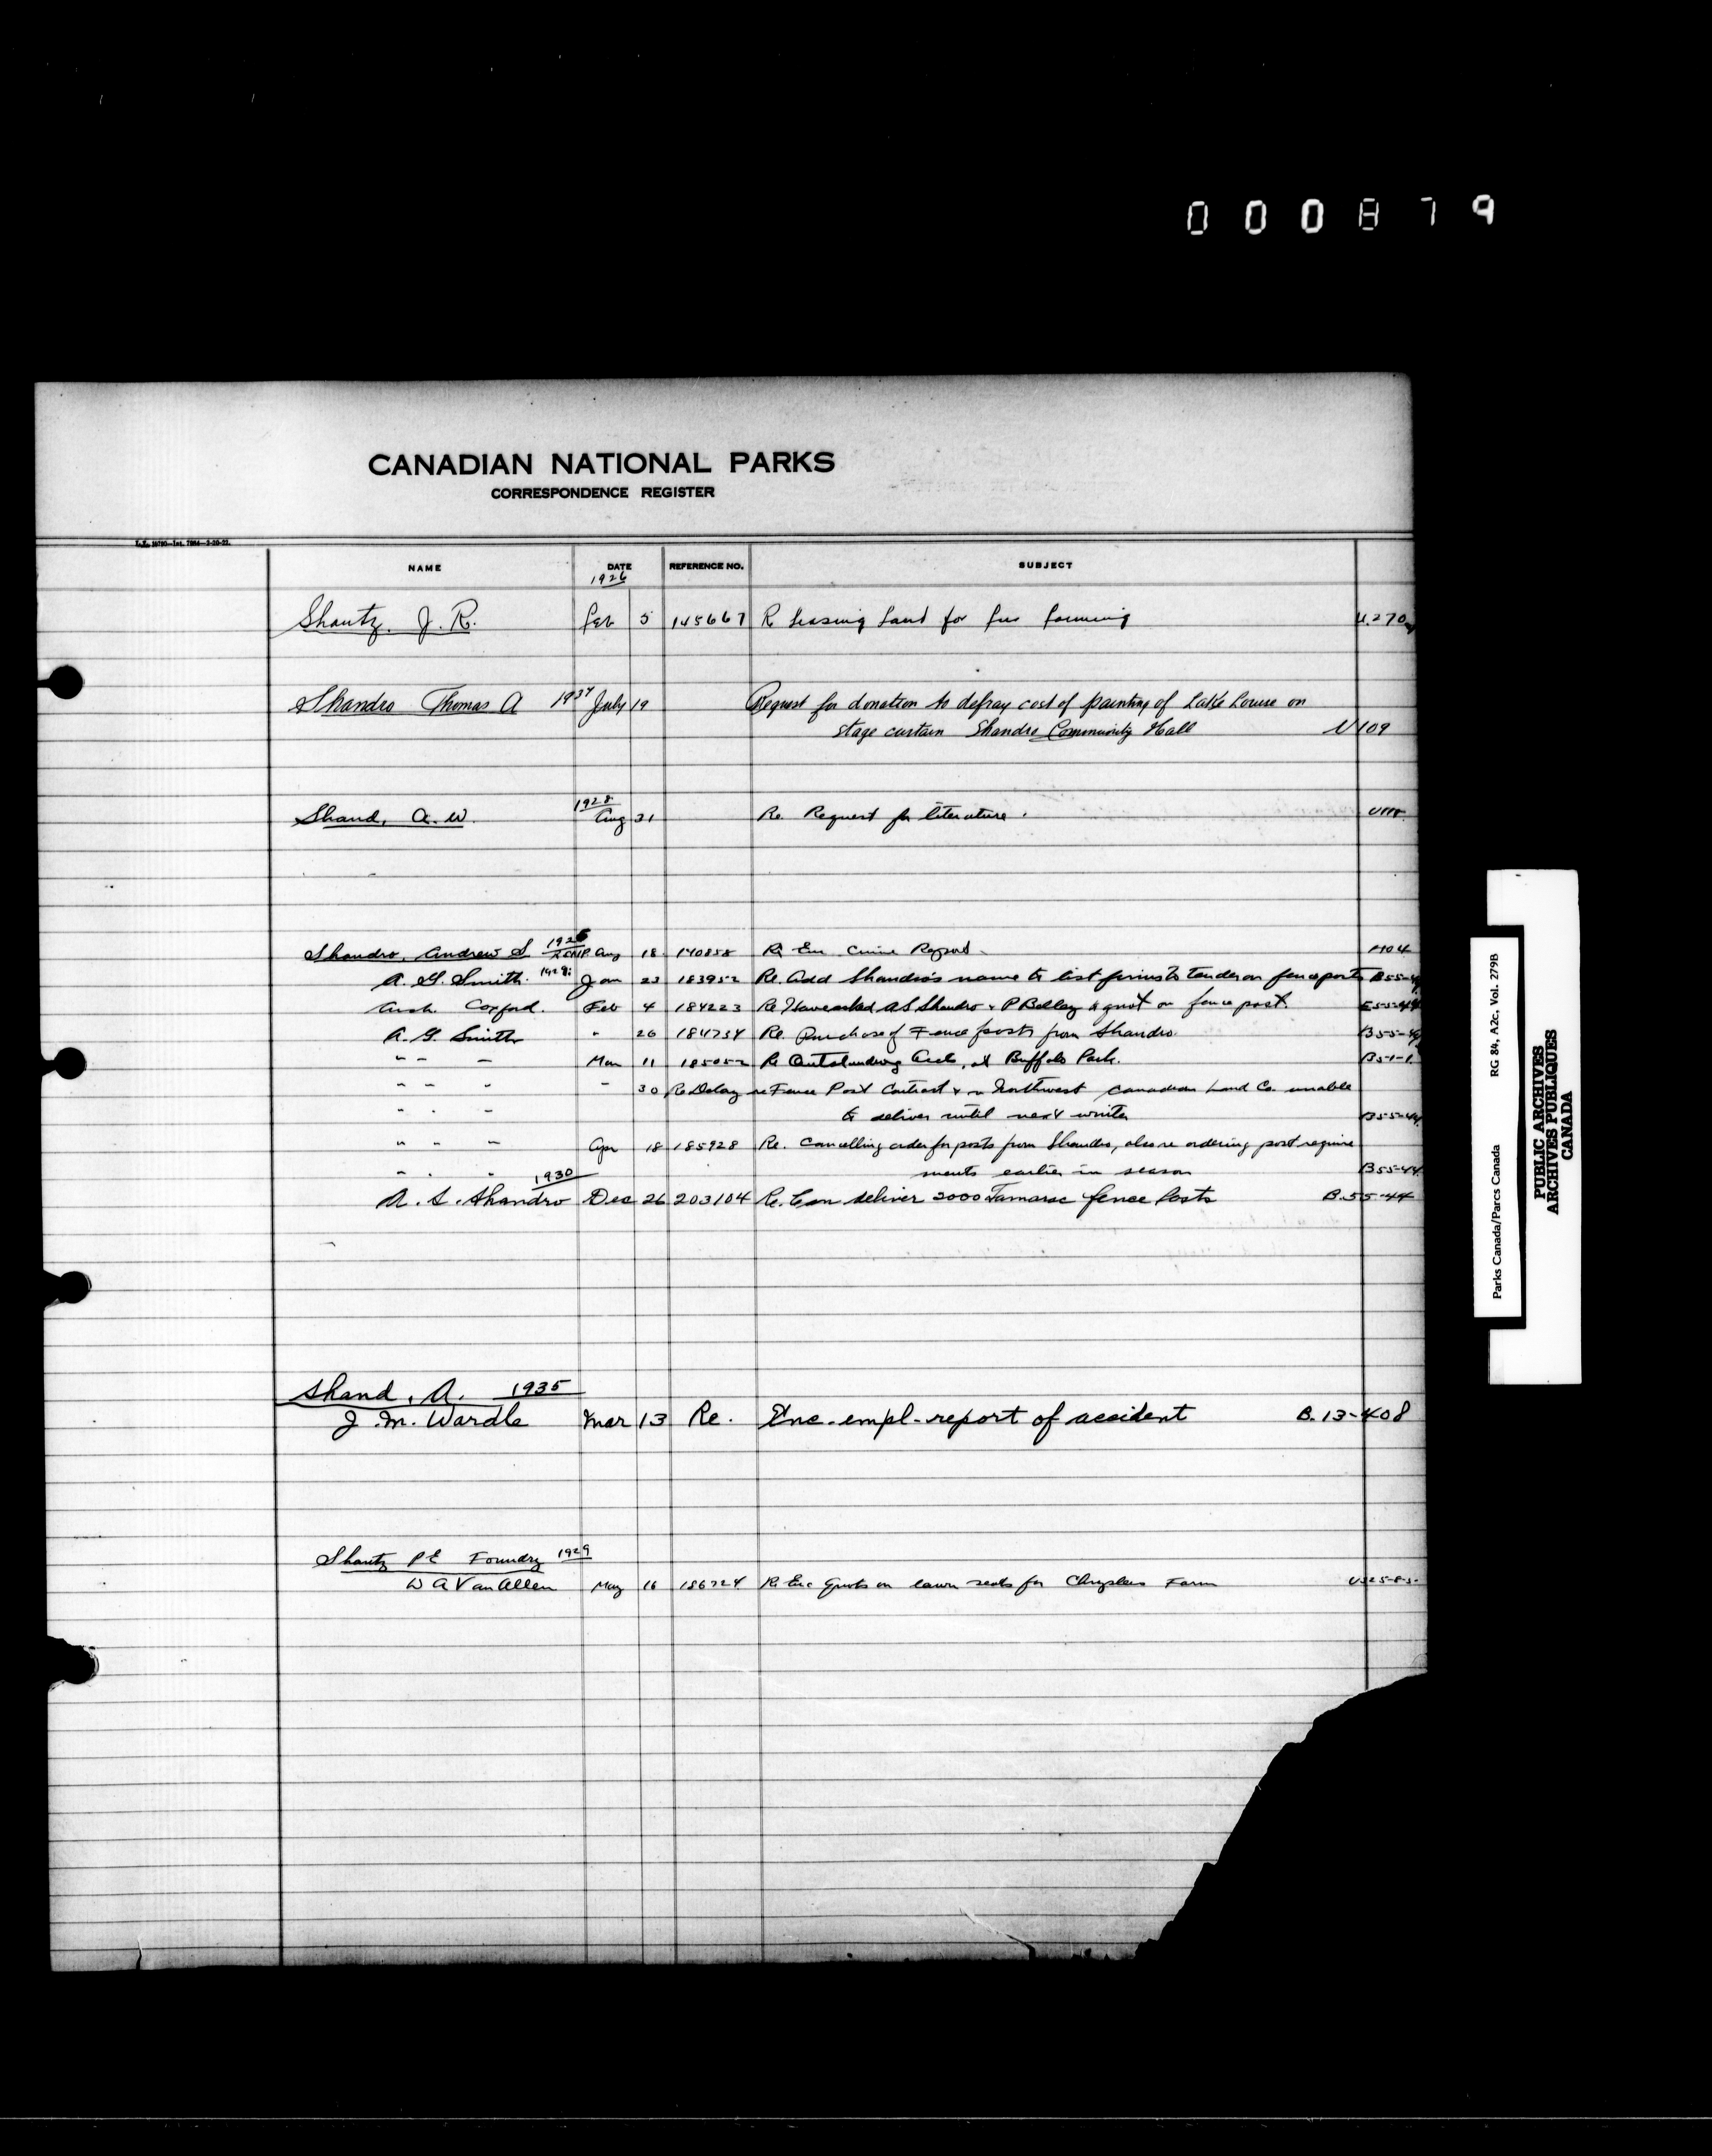 000879
CANADIAN NATIONAL PARKS
CORRESPONDENCE REGISTER
NAME DATE REFERENCE NO. SUBJECT
1926
Shantz, J. R. Feb 5 145667 R Leasing Land for fur farming U.270
Shandro Thomas A 1934 July 19 Request for donation to defray cost of painting of Lake Louise on
stage curtain Shandro Community Hall U109
1928
Shand, A. W. Aug 31 Re Request for literature.
Shandro, Andrew S. 1925 RCMP Aug 18 140858 Re Enc Crime Report
A. G. Smith 1929 Jan 23 183952 Re. Add Shandro's name to list firms to tender on fence posts B55-44
Coxford. Feb 4 184223 Re Have asked A S Shandro & P Bellay to quot on fence post.
A. G. Smith " 26 184734 Re. Purchase of Fence posts from Shandro B55-44
" " " Mar 11 185052 Re Outstanding Accts, at Buffalo Park. B51-1
" " " " 30 Re Delay re Fence Post Contract & Northwest Canadian Land Co. unable
" " " to deliver until next winter B55-44
" " " Apr 18 185928 Re. Cancelling order for posts from Shandro, also re ordering post require
" " " ments earlier in season B55-44
1930
A. S. Shandro Dec 26 203104 Re. Can deliver 2000 Tamarac fence Posts B.55-44
Shand, A. 1935
J. M. Wardle Mar 13 Re. Enc. empl- report of accident B.13-408
Shantz P E Foundry 1929
W A Van Allen May 16 186724 Re Enc Quots on lawn seats for Chryslers Farm
Parks Canada/Parcs Canada RG 84, A2c, Vol. 279B
PUBLIC ARCHIVES
ARCHIVES PUBLIQUES
CANADA